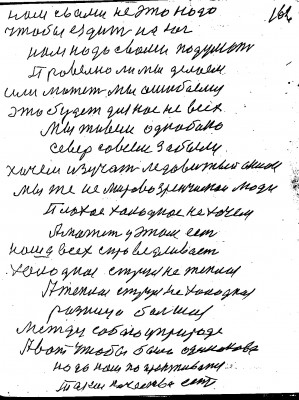 162
нам с вами не это надо
чтобы ездит на юг
нам надо с вами подумать
Правелно ли мы делаем
или может мы ошибаемся
это будет для нас не всех
Мы живем однобоко
север совсем забыли
хочем изучат ледовитый океан
мы же не мировоззренческие люди
Плохое холодное не хочем
А может у этом ест
наша всех справедливаст
холодная струя не теплая
А теплая струя не холодная
разница большая
Между собою природе
А вот чтобы было одинаково
надо нам
такие качества ест